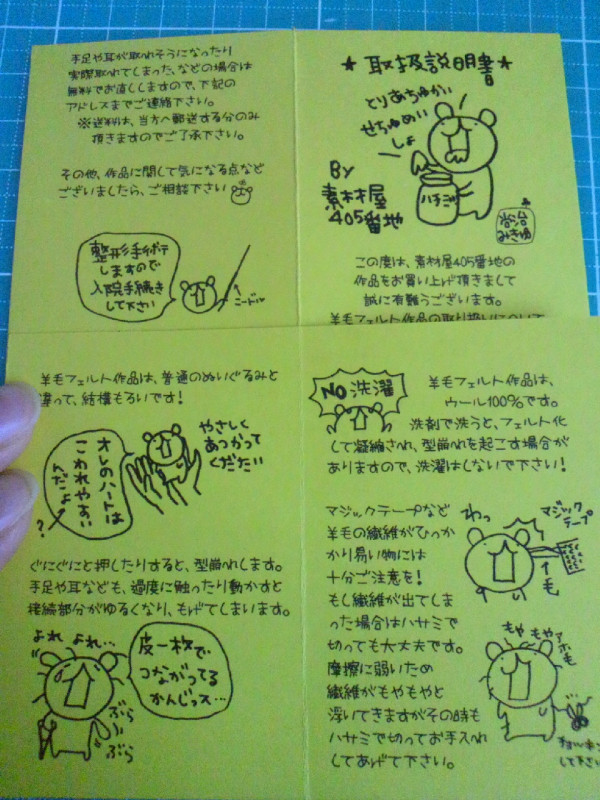 ★取扱説明書★
とりあちゅかい
せちゅめい
しょ
By
素材屋
405番地
ハチミツ
谷治
みきゆ
この度は、素材屋405番地の
作品をお買い上げ頂きまして
誠に有難うございます。
羊毛フェルト作品の取り扱いについて
手足や耳が取れそうになったり
実際取れてしまった、などの場合は
無料でお直ししますので、下記の
アドレスまでご連絡下さい。
※送料は、当方へ郵送する分のみ
頂きますのでご了承下さい。
その他、作品に関して気になる点など
ございましたら、ご相談下さい
整形手術
しますので
入院手続き
して下さい
ニードル
羊毛フェルト作品は、普通のぬいぐるみと
違って、結構もろいです!
オレのハートは
こわれやすい
んだよ
?
やさしく
あつかって
くだたい
ぐにぐにと押したりすると、型崩れします。
手足や耳なども、過度に触ったり動かすと
接続部分がゆるくなり、もげてしまいます。
よれ よれ…
皮一枚で
つながってる
かんじっス…
ぶら
ぶら
NO 洗濯
羊毛フェルト作品は、
ウール100%です。
洗剤で洗うと、フェルト化
して凝縮され、型崩れを起こす場合が
ありますので、洗濯はしないで下さい!
マジックテープなど
羊毛の繊維がひっか
かり易い物には
十分ご注意を!
もし繊維が出てしま
った場合はハサミで
切っても大丈夫です。
摩擦に弱いため
繊維がもやもやと
浮いてきますがその時も
ハサミで切ってお手入れ
してあげて下さい。
わっ
マジック
テープ
毛
もや もや
アホ毛
して下さい